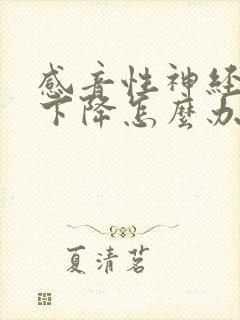 感音性神经
下降怎麼办
夏清茗